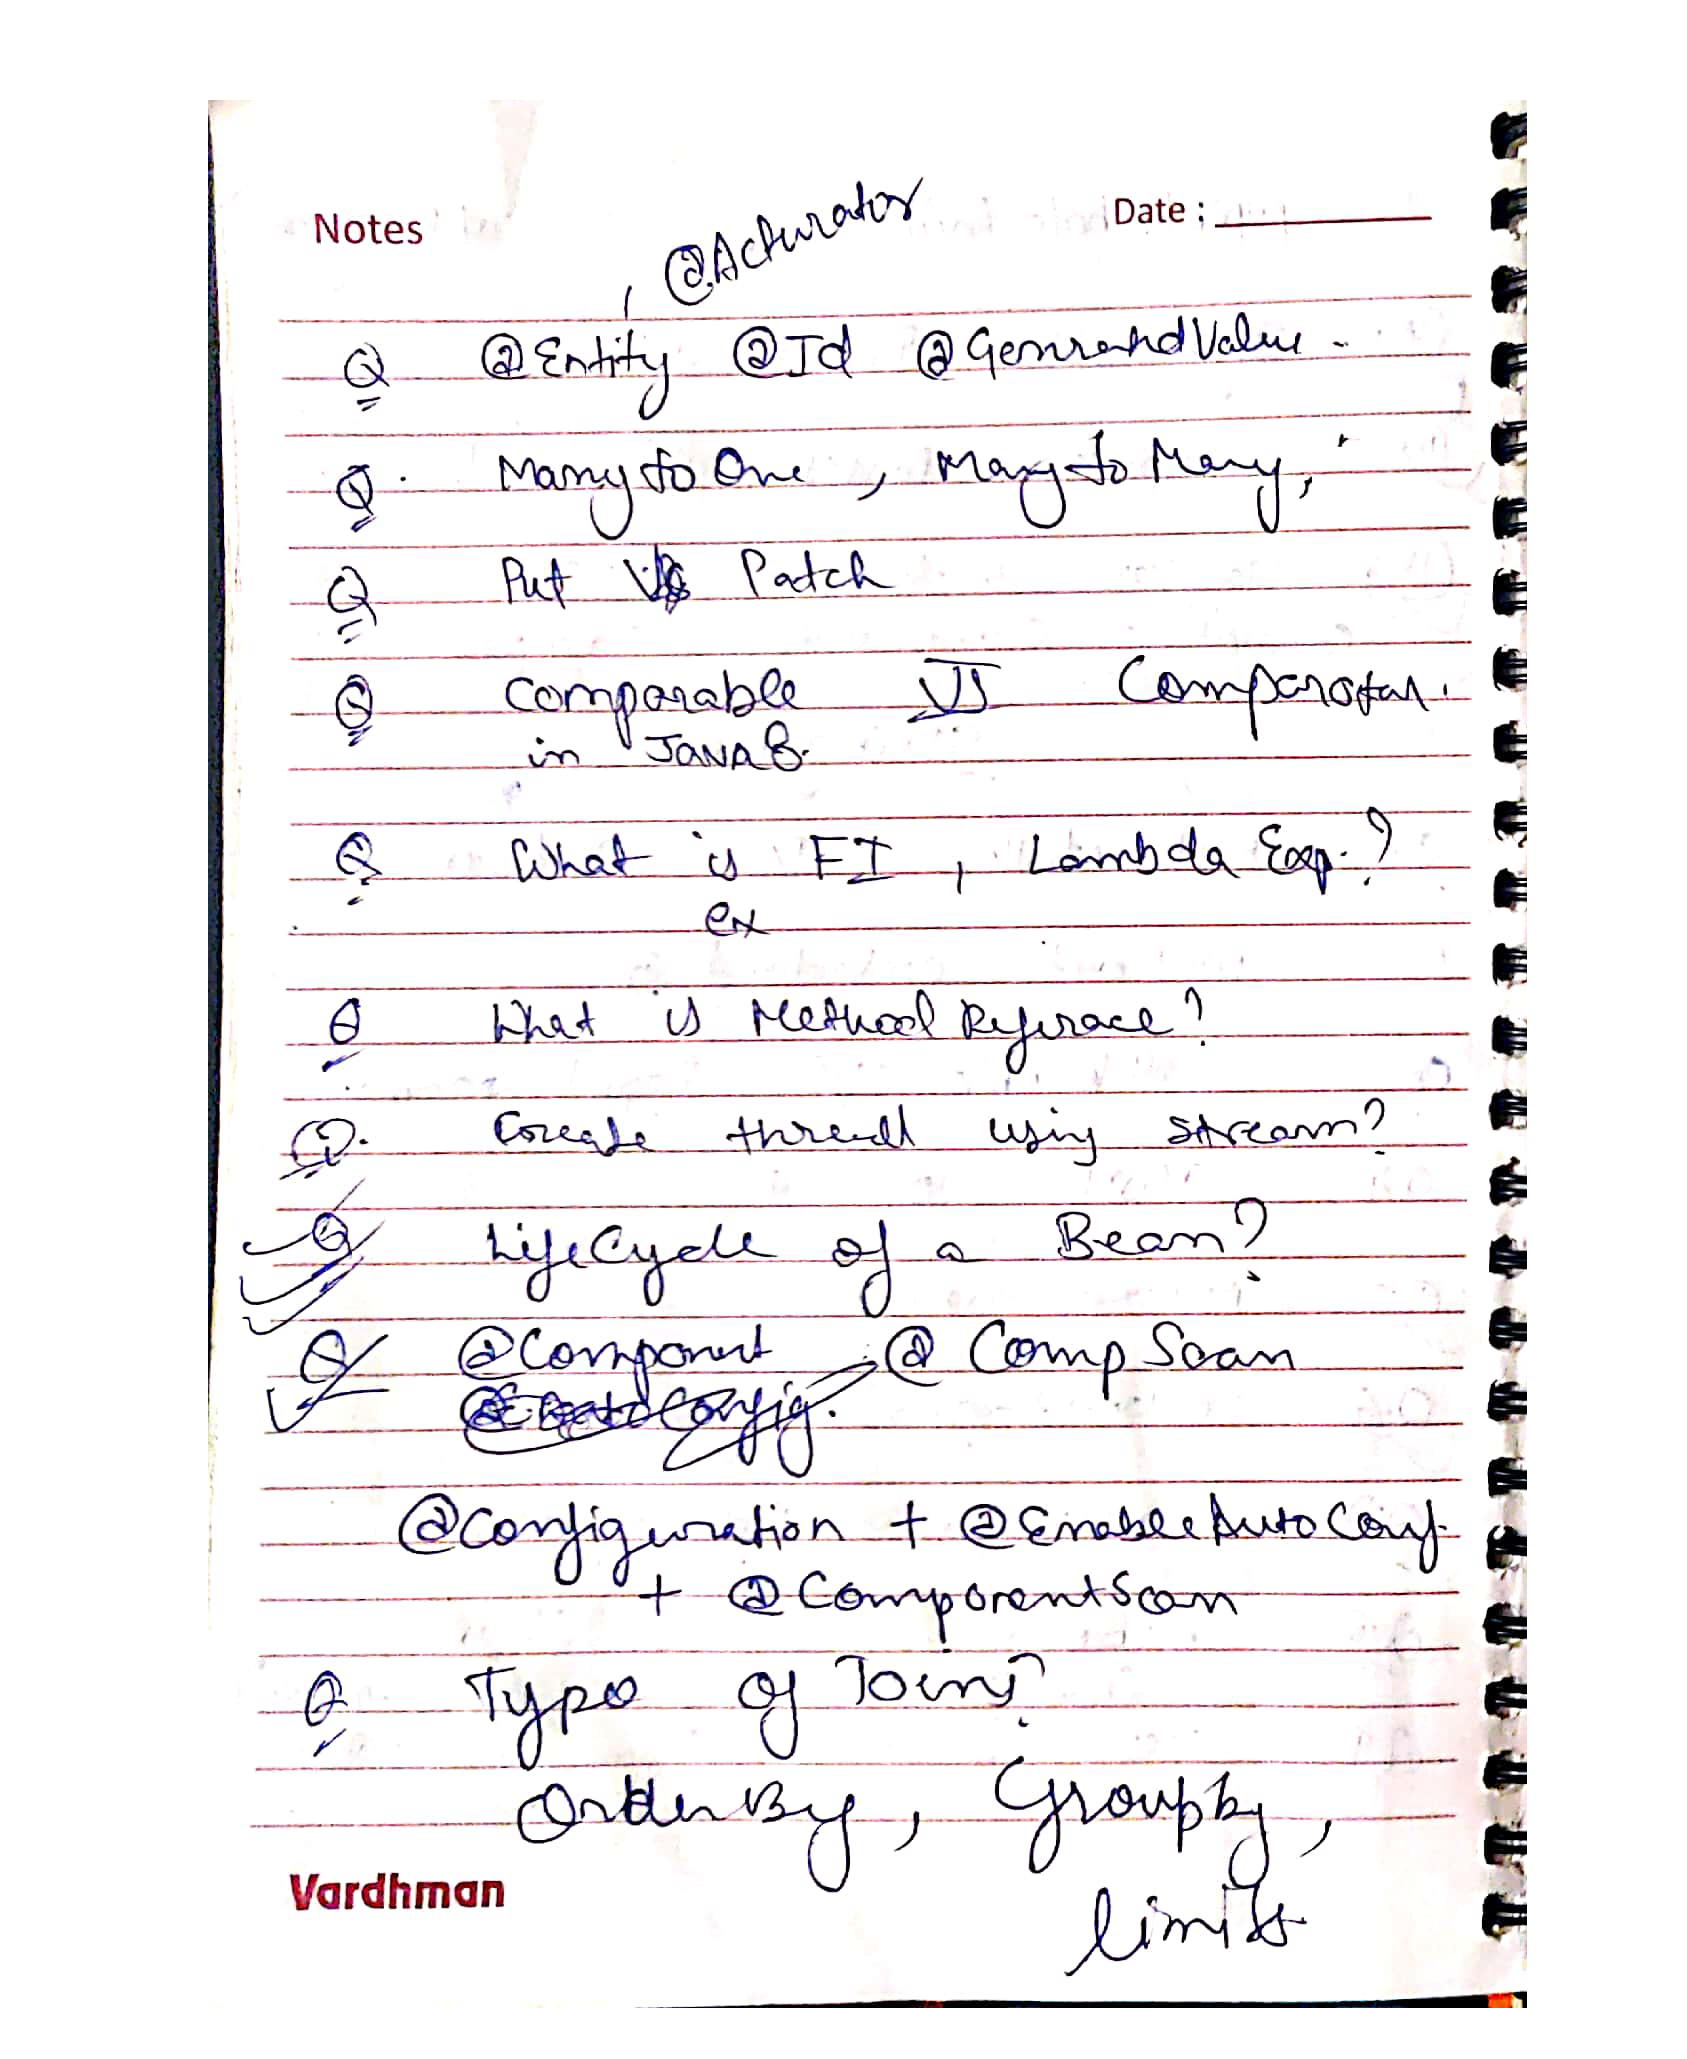 Notes
Date :
, @Acturator
Q @Entity @Id @GenratedValue.
Q. Many to One, Many to Many,
Q Put Vs Patch
Q Comparable VS Comparator.
in JAVA 8.
Q What is FI, Lambda Exp.?
ex
Q What is Method Referace?
Q. Create thread using stream?
Q LifeCycle of a Bean?
Q @Component @CompScan
@Configuration + @EnableAutoConf.
+ @ComponentScan
Q Type of Joins?
Order By, Group by,
limits
Vardhman